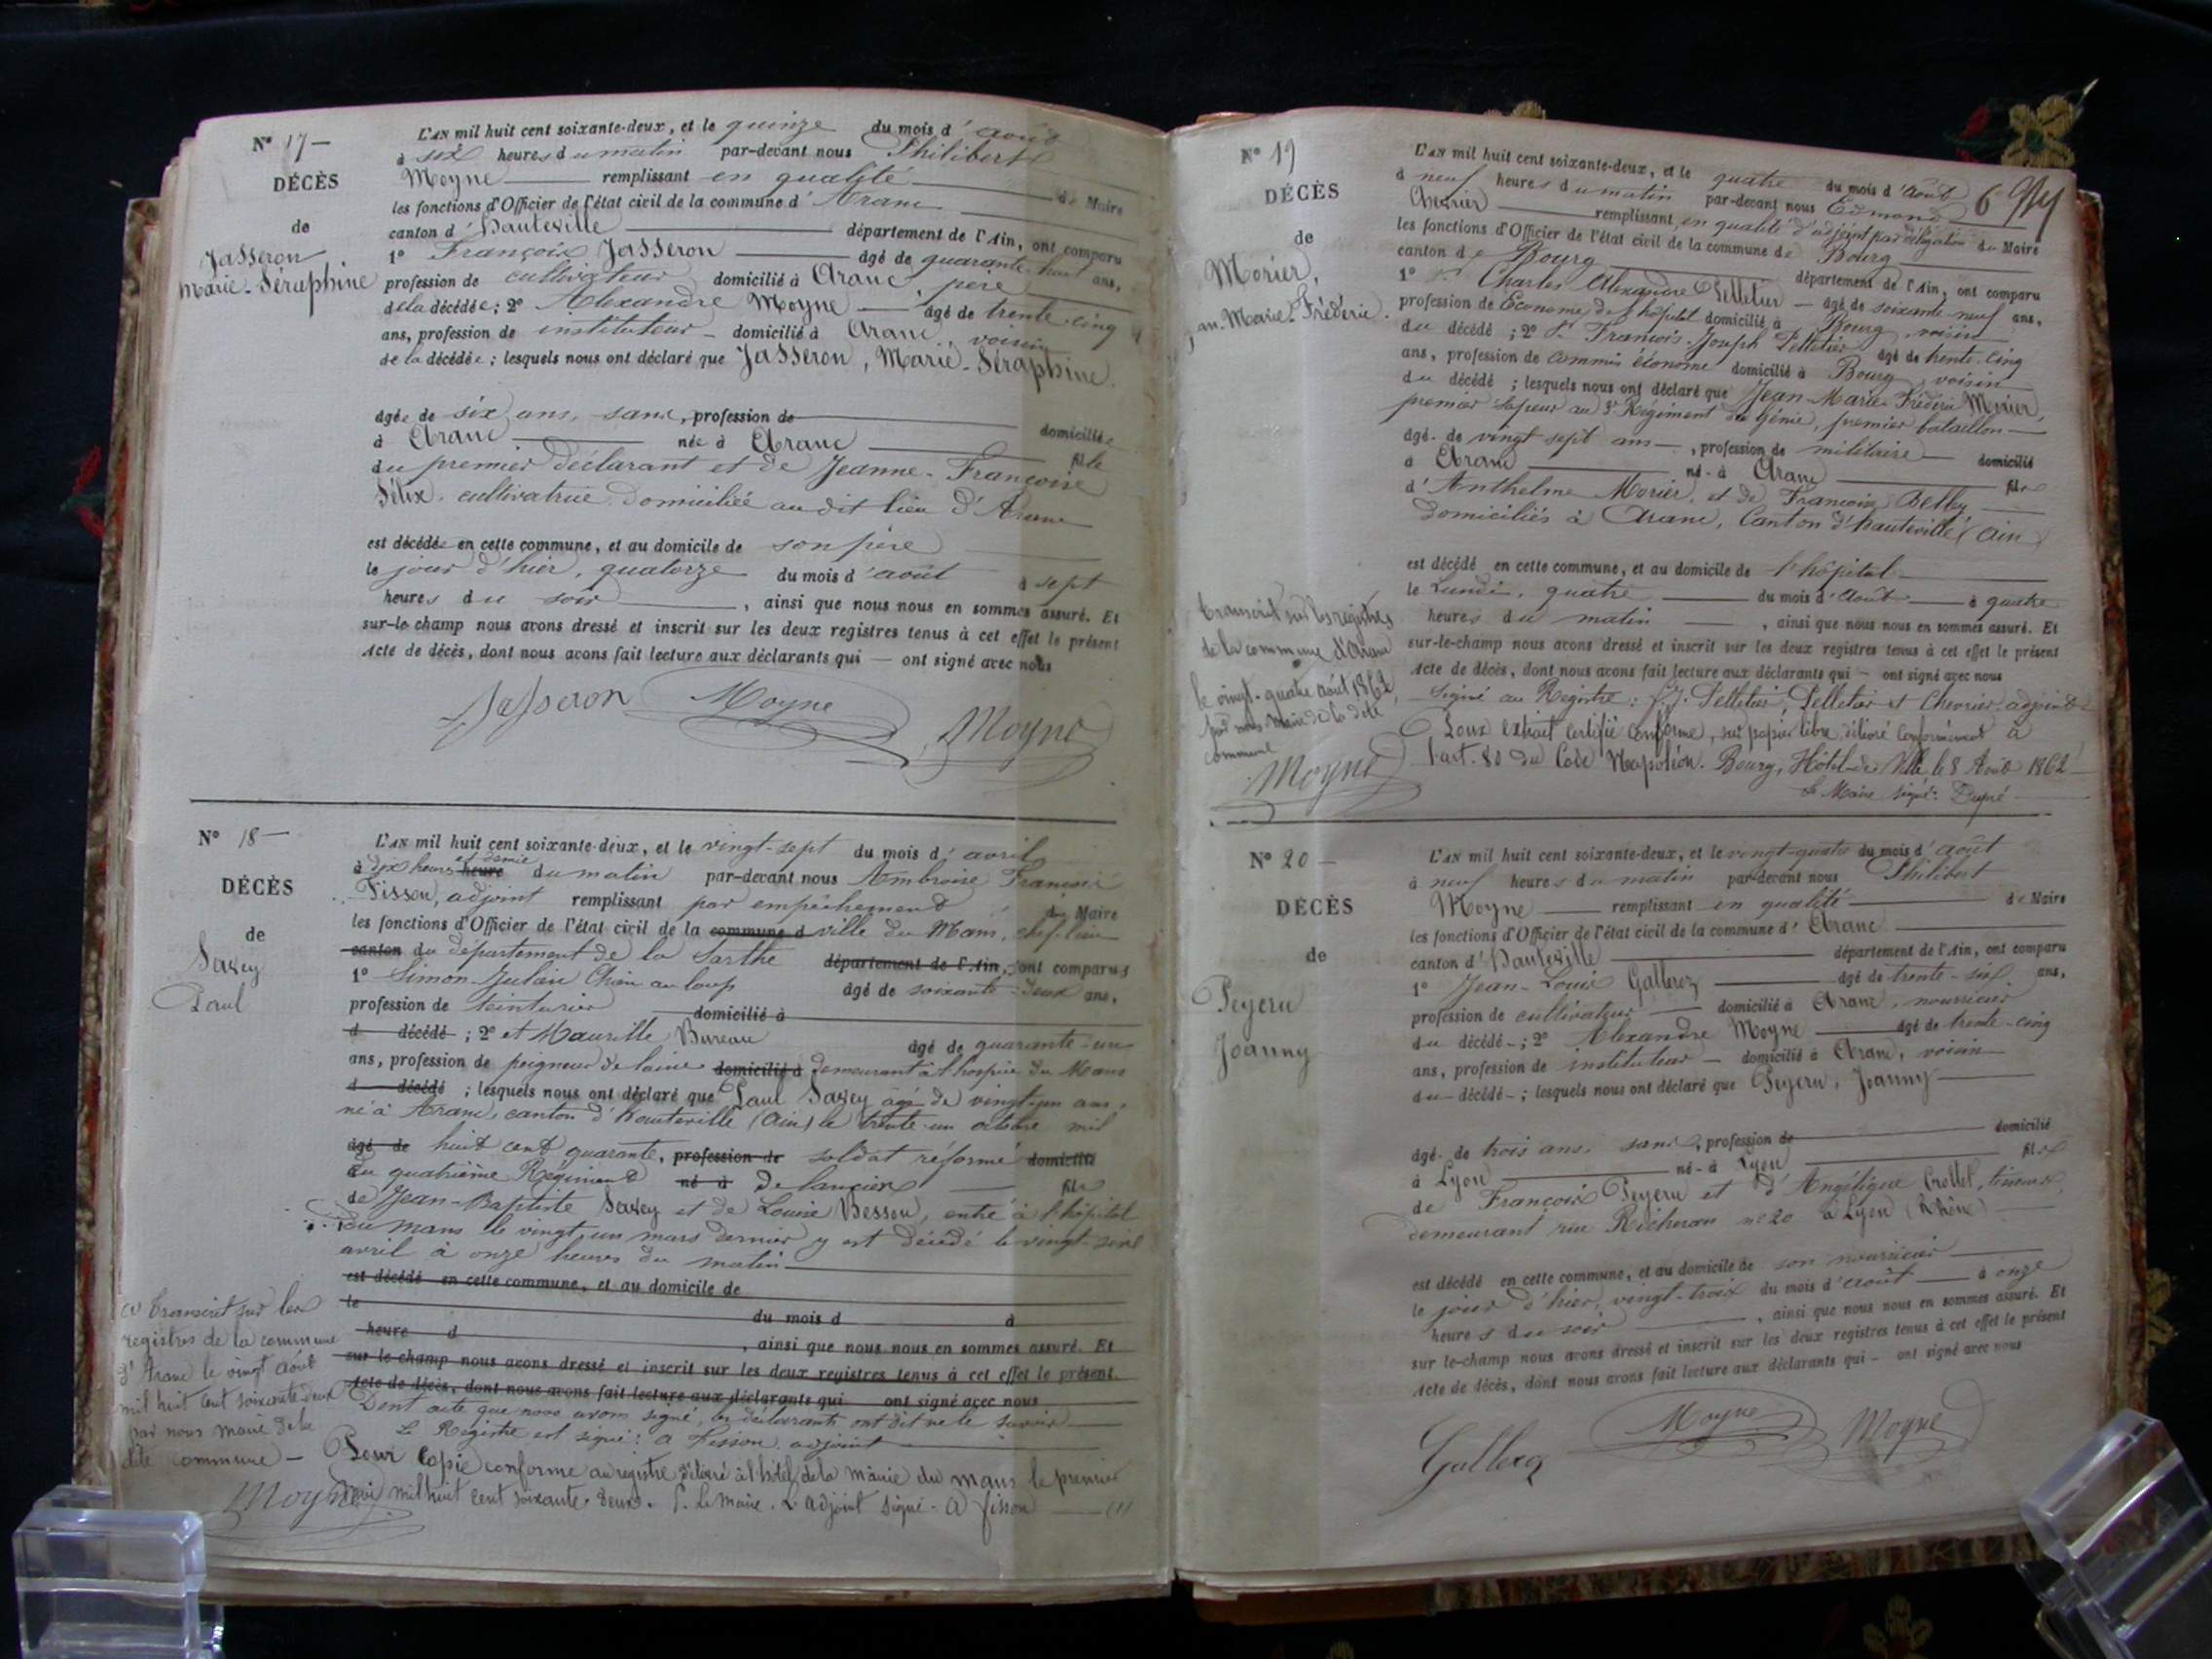 N° 17 —
DÉCÈS
de
Jasseron
Marie-Séraphine
L'AN mil huit cent soixante-deux, et le quinze du mois d'août
à six heures du matin par-devant nous Philibert
Moyne remplissant en qualité de Maire
les fonctions d'Officier de l'état civil de la commune d'Aranc
canton d'Hauteville département de l'Ain, ont comparu
1° François Jasseron âgé de quarante huit ans,
profession de cultivateur domicilié à Aranc, père
de la décédée; 2° Alexandre Moyne âgé de trente-cinq
ans, profession de instituteur domicilié à Aranc, voisin
de la décédée; lesquels nous ont déclaré que Jasseron, Marie-Séraphine
âgée de six ans, sans, profession de domiciliée
à Aranc née à Aranc fille
du premier déclarant et de Jeanne-Françoise
Félix, cultivatrice domiciliée au dit lieu d'Aranc
est décédée en cette commune, et au domicile de son père
le jour d'hier, quatorze du mois d'août à sept
heures du soir, ainsi que nous nous en sommes assuré. Et
sur-le champ nous avons dressé et inscrit sur les deux registres tenus à cet effet le présent
Acte de décès, dont nous avons fait lecture aux déclarants qui — ont signé avec nous
Jasseron Moyne Moyne
N° 18 —
DÉCÈS
de
Savey
Paul
L'AN mil huit cent soixante-deux, et le vingt-sept du mois d'avril
à dix heures et demie heure du matin par-devant nous Ambroise François
Fisson, adjoint remplissant par empêchement du Maire
les fonctions d'Officier de l'état civil de la commune d ville du Mans, chef-lieu
canton du département de la Sarthe département de l'Ain, ont comparus
1° Simon Julien Chanteloup âgé de soixante-deux ans,
profession de teinturier domicilié à
d décédé; 2° et Maurille Bureau âgé de quarante-un
ans, profession de peigneur de laine domicilié à demeurant à l'hospice du Mans
d décédé; lesquels nous ont déclaré que Paul Savey âgé de vingt-un ans,
né à Aranc, canton d'Hauteville (Ain) le trente-un octobre mil
âgé de huit cent quarante, profession de soldat réformé domicilié
du quatrième Régiment né à de lanciers fils
de Jean-Baptiste Savey et de Louise Besson, entré à l'hôpital
du Mans le vingt-un mars dernier y est décédé le vingt-six
avril à onze heures du matin
est décédé en cette commune, et au domicile de
le du mois d à
heure d, ainsi que nous nous en sommes assuré. Et
sur-le-champ nous avons dressé et inscrit sur les deux registres tenus à cet effet le présent
Acte de décès, dont nous avons fait lecture aux déclarants qui ont signé avec nous
Dont acte que nous avons signé, les déclarants ont dit ne le savoir
Le Registre est signé: A Fisson, adjoint
Pour Copie conforme au registre délivré à l'hôtel de la mairie du Mans le premier
mai mil huit cent soixante-deux. P. le maire. L'adjoint signé - A fisson (1)
(1) Transcrit sur les
registres de la commune
d'Aranc le vingt août
mil huit cent soixante-deux
par nous maire de la
dite commune —
Moyne
6
N° 19
DÉCÈS
de
Morier,
Jean-Marie-Frédéric.
L'AN mil huit cent soixante-deux, et le quatre du mois d'août
à neuf heures du matin par-devant nous Edmond
Chevrier remplissant en qualité d'adjoint par délégation du Maire
les fonctions d'Officier de l'état civil de la commune de Bourg
canton de Bourg département de l'Ain, ont comparu
1° Sr Charles Alexandre Pelletier — âgé de soixante-neuf ans,
profession de Économe de l'hôpital domicilié à Bourg, voisin
du décédé; 2° Sr François-Joseph Pelletier âgé de trente-cinq
ans, profession de commis économe domicilié à Bourg, voisin
du décédé; lesquels nous ont déclaré que Jean-Marie-Frédéric Morier,
premier sapeur au 3e Régiment du Génie, premier bataillon —
âgé de vingt sept ans —, profession de militaire domicilié
à Aranc né à Aranc fils
d'Anthelme Morier, et de Françoise Belley
domiciliés à Aranc, Canton d'hauteville (Ain)
est décédé en cette commune, et au domicile de l'hôpital
le Lundi, quatre du mois d'août à quatre
heures du matin, ainsi que nous nous en sommes assuré. Et
sur-le-champ nous avons dressé et inscrit sur les deux registres tenus à cet effet le présent
Acte de décès, dont nous avons fait lecture aux déclarants qui — ont signé avec nous
Signé au Registre: f. J. Pelletier, Pelletier et Chevrier, adjoint
Pour extrait certifié conforme, sur papier libre, délivré conformément à
l'art. 80 du Code Napoléon. Bourg, Hôtel-de-Ville, le 8 Août 1862
Le Maire signé: Dupré
Transcrit sur les registres
de la commune d'Aranc
le vingt-quatre août 1862,
par nous Maire de la dite
commune
Moyne
N° 20 —
DÉCÈS
de
Peyeru
Joanny
L'AN mil huit cent soixante-deux, et le vingt-quatre du mois d'août
à neuf heures du matin par-devant nous Philibert
Moyne remplissant en qualité de Maire
les fonctions d'Officier de l'état civil de la commune d'Aranc
canton d'Hauteville département de l'Ain, ont comparu
1° Jean-Louis Gallerez âgé de trente-six ans,
profession de cultivateur domicilié à Aranc, nourricier
du décédé; 2° Alexandre Moyne âgé de trente-cinq
ans, profession de instituteur domicilié à Aranc, voisin
du décédé; lesquels nous ont déclaré que Peyeru, Joanny
âgé de trois ans, sans, profession de domicilié
à Lyon né à Lyon fils
de François Peyeru et d'Angélique Crollet,
demeurant rue Richeran n° 20 à Lyon (Rhône)
est décédé en cette commune, et au domicile de son nourricier
le jour d'hier, vingt-trois du mois d'août à onze
heures du soir, ainsi que nous nous en sommes assuré. Et
sur le-champ nous avons dressé et inscrit sur les deux registres tenus à cet effet le présent
Acte de décès, dont nous avons fait lecture aux déclarants qui — ont signé avec nous
Gallerez Moyne Moyne